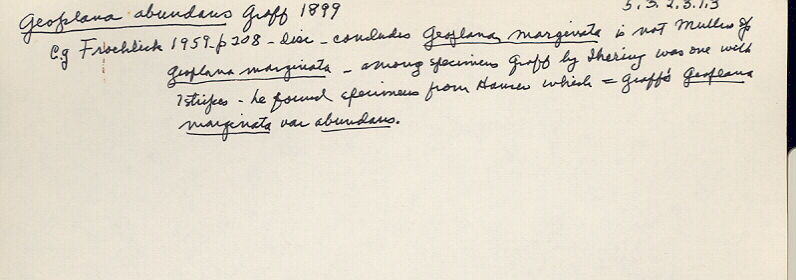 Geoplana abundans Graff 1899 5.3.2.3.1.3
C.g Froehlich 1959-p 208 - disc - concludes Geoplana marginata is not Mullers
Geoplana marginata - among specimens Graff by Ihering was one with
7 stripes - he found specimens from Hansen which = Graff's Geoplana
marginata var abundans.